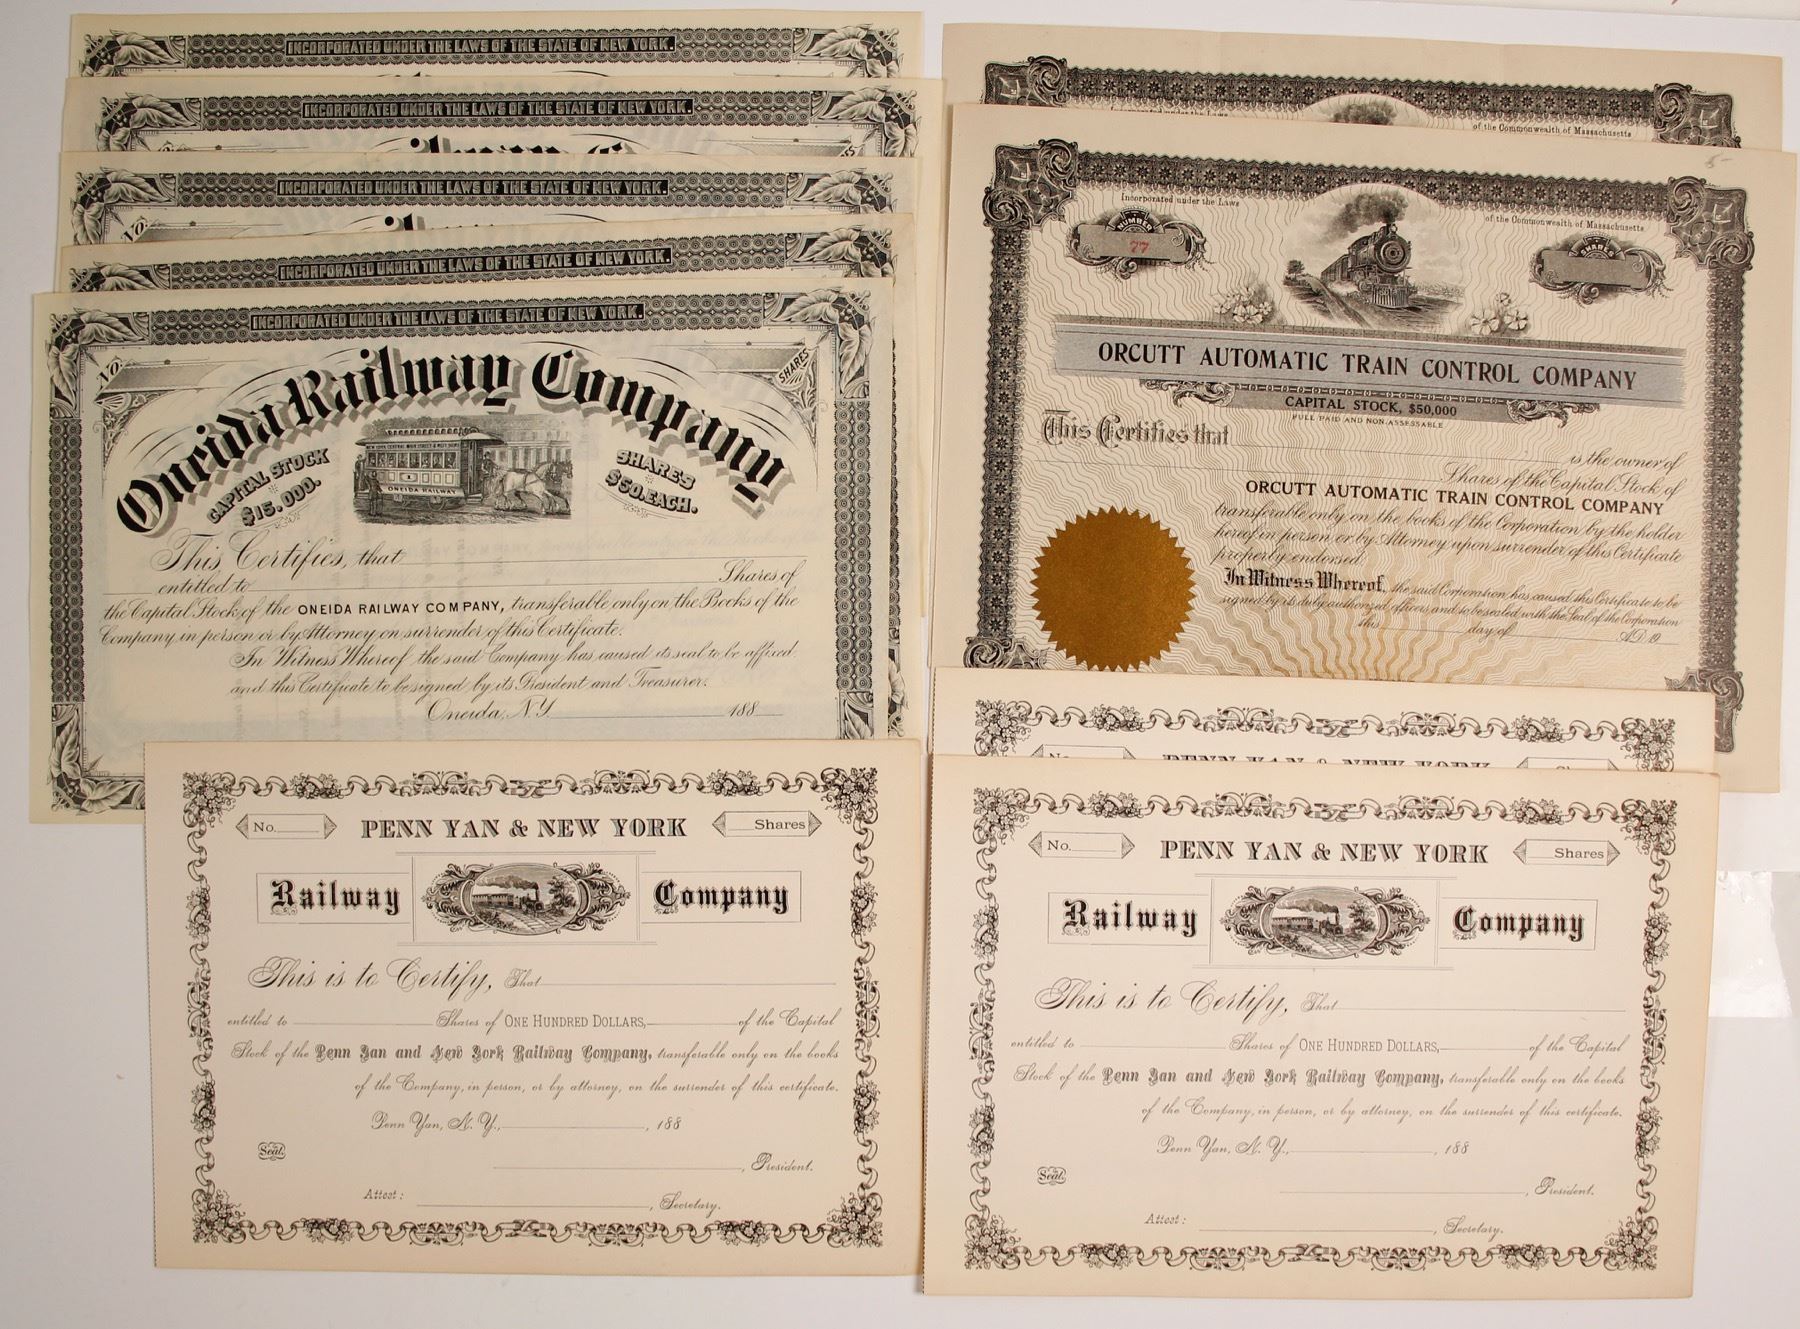 INCORPORATED UNDER THE LAWS OF THE STATE OF NEW YORK.
INCORPORATED UNDER THE LAWS OF THE STATE OF NEW YORK.
INCORPORATED UNDER THE LAWS OF THE STATE OF NEW YORK.
No.
INCORPORATED UNDER THE LAWS OF THE STATE OF NEW YORK.
INCORPORATED UNDER THE LAWS OF THE STATE OF NEW YORK.
No.
SHARES
Oneida Railway Company
CAPITAL STOCK
$15,000.
SHARES
$50. EACH.
ONEIDA RAILWAY
This Certifies, that
entitled to Shares of
the Capital Stock of the ONEIDA RAILWAY COMPANY, transferable only on the Books of the
Company in person or by Attorney on surrender of this Certificate.
In Witness Whereof the said Company has caused its seal to be affixed
and this Certificate to be signed by its President and Treasurer.
Oneida, N.Y. 188
of the Commonwealth of Massachusetts
5-
Incorporated under the Laws
of the Commonwealth of Massachusetts
NUMBER
77
SHARES
ORCUTT AUTOMATIC TRAIN CONTROL COMPANY
CAPITAL STOCK, $50,000
FULL PAID AND NON-ASSESSABLE
This Certifies that
is the owner of
Shares of the Capital Stock of
ORCUTT AUTOMATIC TRAIN CONTROL COMPANY
transferable only on the books of the Corporation by the holder
hereof in person or by Attorney upon surrender of this Certificate
properly endorsed.
In Witness Whereof, the said Corporation has caused this Certificate to be
signed by its duly authorized officers and to be sealed with the Seal of the Corporation
this day of A.D. 19
No. PENN YAN & NEW YORK Shares
Railway Company
This is to Certify, That
entitled to Shares of ONE HUNDRED DOLLARS, of the Capital
Stock of the Penn Yan and New York Railway Company, transferable only on the books
of the Company, in person, or by attorney, on the surrender of this certificate.
Penn Yan, N. Y., , 188
Seal.
, President.
Attest: , Secretary.
PENN YAN & NEW YORK
No. PENN YAN & NEW YORK Shares
Railway Company
This is to Certify, That
entitled to Shares of ONE HUNDRED DOLLARS, of the Capital
Stock of the Penn Yan and New York Railway Company, transferable only on the books
of the Company, in person, or by attorney, on the surrender of this certificate.
Penn Yan, N. Y., , 188
Seal.
, President.
Attest: , Secretary.